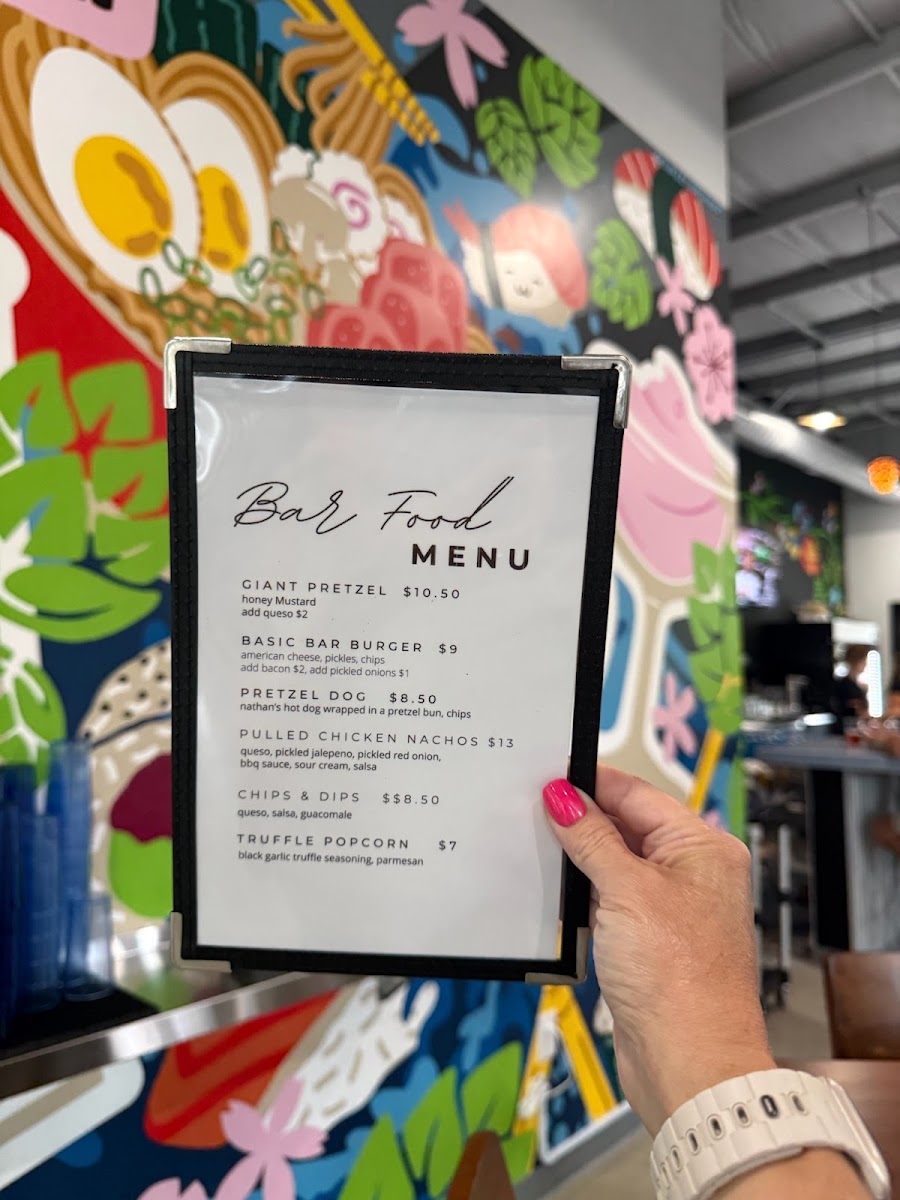 Bar Food
MENU
GIANT PRETZEL $10.50
honey Mustard
add queso $2
BASIC BAR BURGER $9
american cheese, pickles, chips
add bacon $2, add pickled onions $1
PRETZEL DOG $8.50
nathan's hot dog wrapped in a pretzel bun, chips
PULLED CHICKEN NACHOS $13
queso, pickled jalepeno, pickled red onion,
bbq sauce, sour cream, salsa
CHIPS & DIPS $$8.50
queso, salsa, guacomale
TRUFFLE POPCORN $7
black garlic truffle seasoning, parmesan